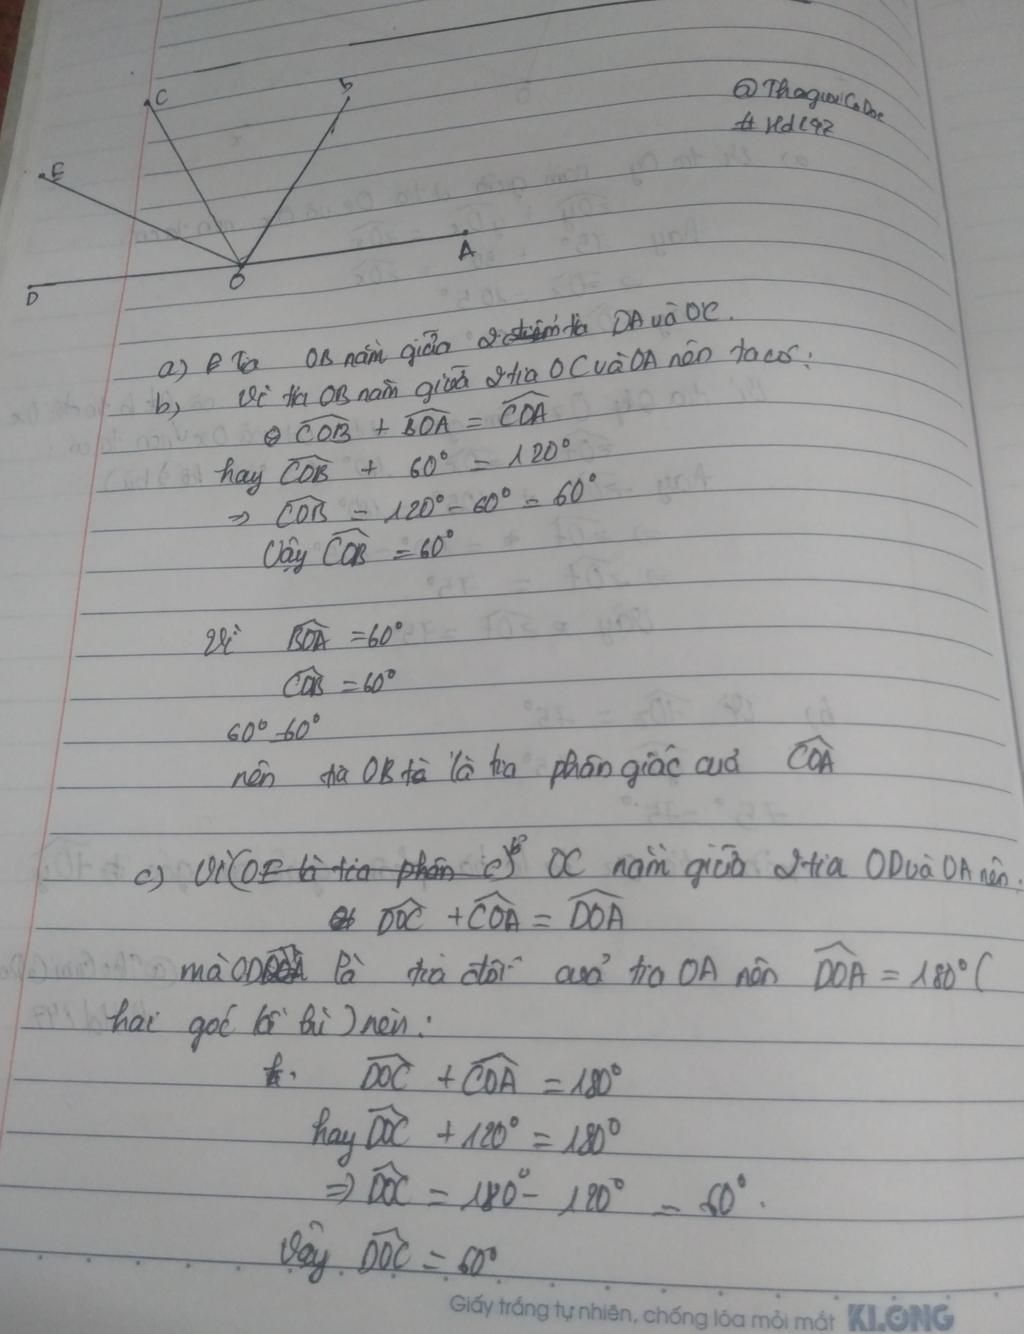 C
b
E
A
O
D
@ThaguiCaDoc
# Hdl92
a) Tia OB nằm giữa 2 tia OA và OC.
b) Vì tia OB nằm giữa 2 tia OC và OA nên ta có:
COB + BOA = COA
hay COB + 60° = 120°
=> COB = 120° - 60° = 60°
Vậy COB = 60°
Vì BOA = 60°
COB = 60°
60° = 60°
nên tia OB là tia phân giác cuả COA
c) Vì OC nằm giữa 2 tia OD và OA nên.
DOC + COA = DOA
mà OD là tia đối cuả tia OA nên DOA = 180° (
hai góc kề bù) nên:
DOC + COA = 180°
hay DOC + 120° = 180°
=> DOC = 180° - 120° = 60°.
Vậy DOC = 60°
Giấy trắng tự nhiên, chống lóa mỏi mắt KLONG